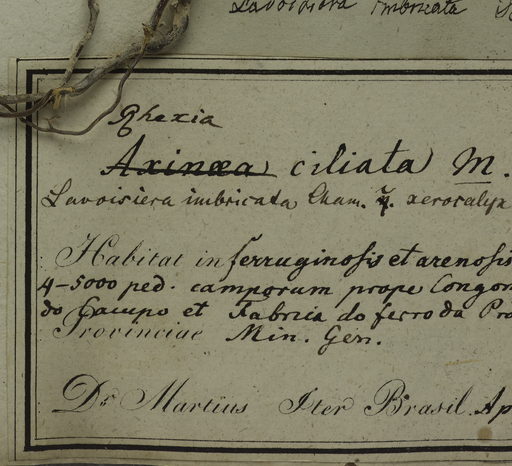 Lavoisiera imbricata
Rhexia
Axinæa ciliata M.
Lavoisiera imbricata Cham. γ. xerocalyx
Habitat in ferruginosis et arenosis
4-5000 ped. camporum prope Congon
do Campo et Fabrica do ferro da Pro
Provinciae Min. Gen.
Dr Martius Iter Brasil. Ap